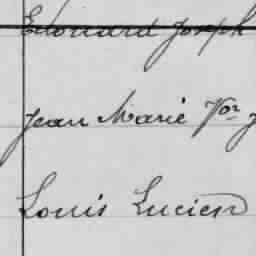 Edouard Joseph
Jean Marie Vor J
Louis Lucien